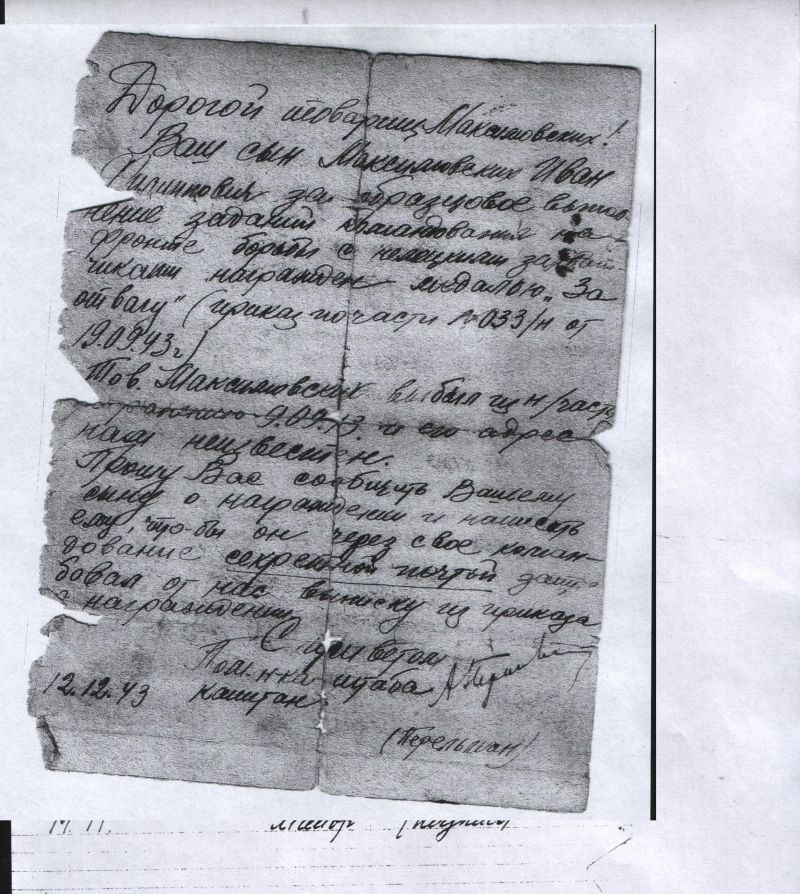 Дорогой товарищ Максимовских!
Ваш сын Максимовских Иван
Филиппович за образцовое выпол-
нение заданий командования на
фронте борьбы с немецкими захват-
чиками награжден медалью „За
отвагу" (приказ по части № 033/н от
19.09.43 г)
Тов. Максимовских выбыл из н/части
9.09.43. и его адрес
нам неизвестен.
Прошу Вас сообщить Вашему
сыну о награждении и написать
ему, что-бы он через свое коман-
дование секретной почтой затре-
бовал от нас выписку из приказа
о награждении
С приветом
Пом. н-ка штаба
12.12.43 капитан
(Перельман)